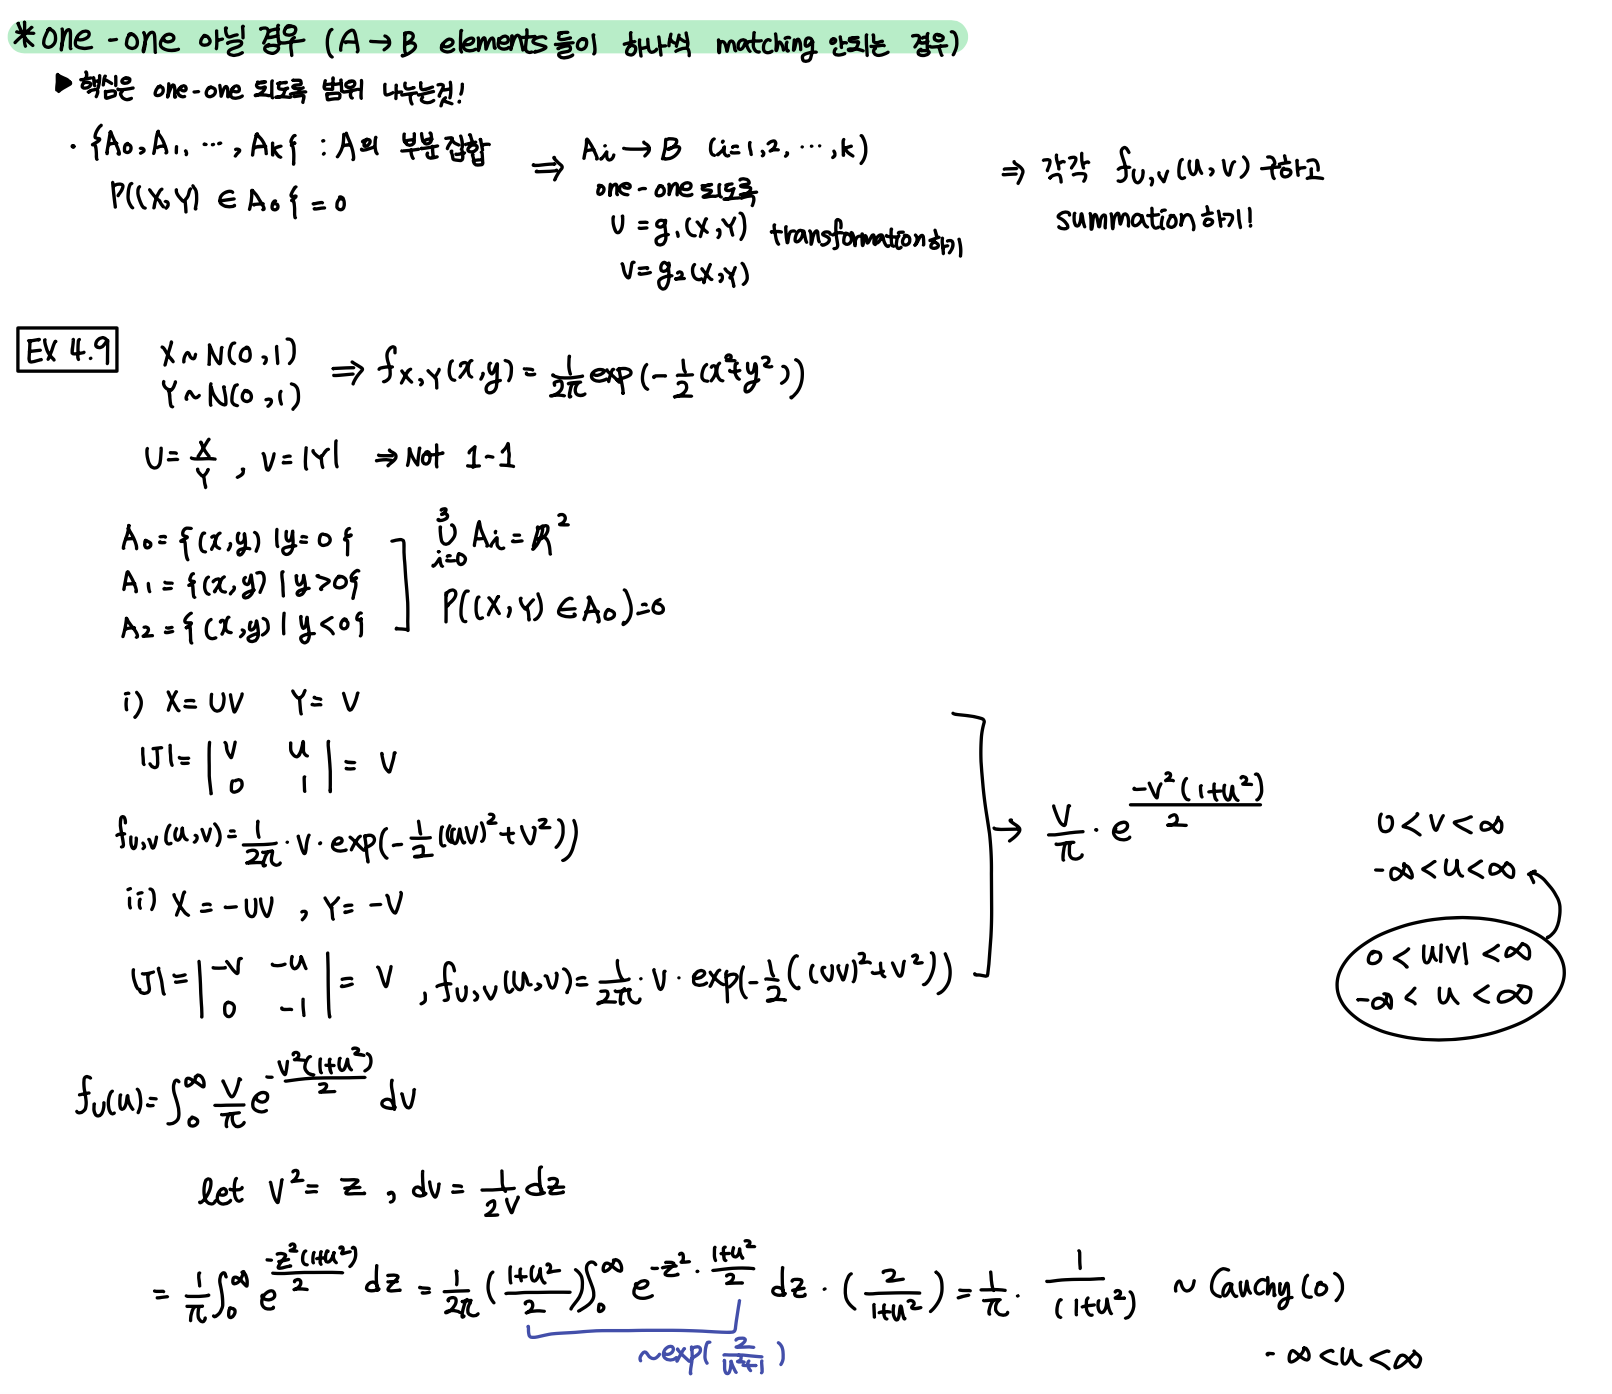 *one-one 아닐 경우 (A→B elements들이 하나씩 matching 안되는 경우)
▶핵심은 one-one 되도록 범위 나누는것!
· {A₀, A₁, ⋯, Aₖ} : A의 부분집합
P((X,Y) ∈ A₀} = 0
⇒ Aᵢ → B (i=1,2, ⋯, k)
one-one 되도록
U = g₁(X,Y) transformation하기
V = g₂(X,Y)
⇒ 각각 f_{U,V}(u,v) 구하고
summation하기!
EX 4.9
X ~ N(0,1)
Y ~ N(0,1)
⇒ f_{X,Y}(x,y) = 1/2π exp(-1/2 (x²+y²))
U = X/Y , V = |Y| ⇒ Not 1-1
A₀ = {(x,y) | y=0}
A₁ = {(x,y) | y>0}
A₂ = {(x,y) | y<0}
∪_{i=0}^{3} Aᵢ = R²
P((X,Y) ∈ A₀) = 0
i) X = UV Y = V
|J| = | v u ; 0 1 | = V
f_{U,V}(u,v) = 1/2π · V · exp(-1/2 ((uv)² + V²))
ii) X = -UV , Y = -V
|J| = | -v -u ; 0 -1 | = V , f_{U,V}(u,v) = 1/2π · V · exp(-1/2 ((UV)² + V²))
→ V/π · e^{-v²(1+u²)/2}
0 < v < ∞
-∞ < u < ∞
0 < u|v| < ∞
-∞ < u < ∞
f_U(u) = ∫₀^∞ V/π e^{-v²(1+u²)/2} dv
let V² = z , dv = 1/2V dz
= 1/π ∫₀^∞ e^{-z²(1+u²)/2} dz = 1/2π ((1+u²)/2) ∫₀^∞ e^{-z² · (1+u²)/2} dz · (2/(1+u²)) = 1/π · 1/(1+u²) ~ Cauchy(0)
~exp(2/(u²+1))
-∞ < u < ∞